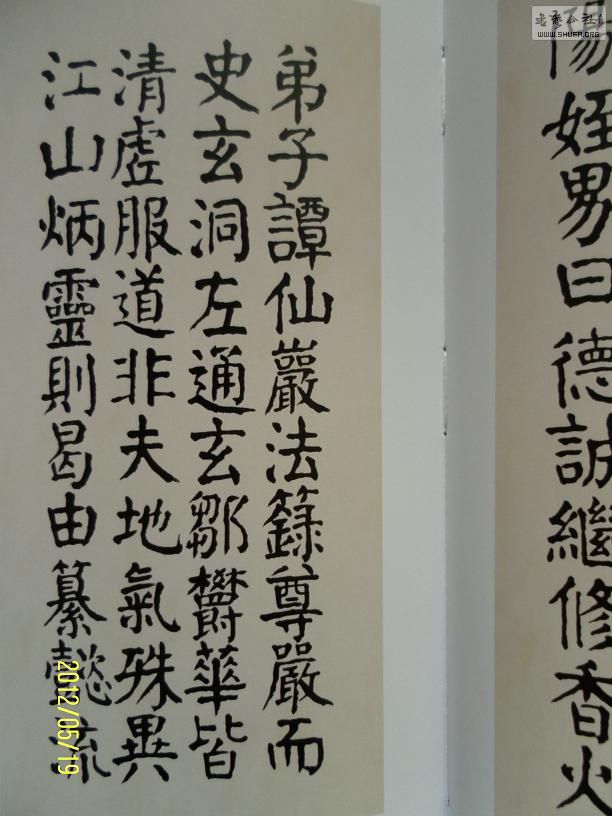 陽姪男曰德誠繼修香火
弟子譚仙巖法籙尊嚴而
史玄洞左通玄鄒鬱華皆
清虛服道非夫地氣殊異
江山炳靈則曷由纂懿流
书艺公社
WWW.SHUFA.ORG
2012/05/19